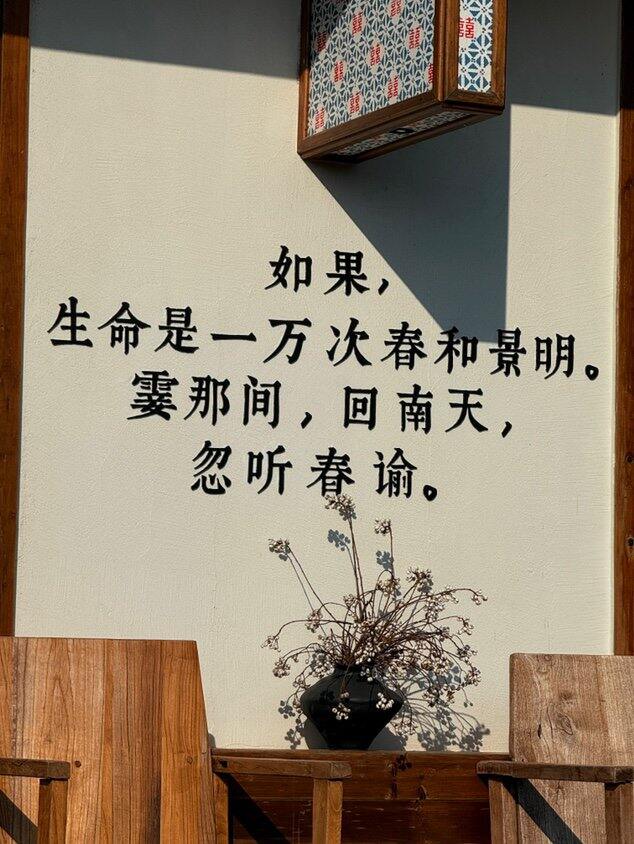 如果,
生命是一万次春和景明。
霎那间,回南天,
忽听春谕。